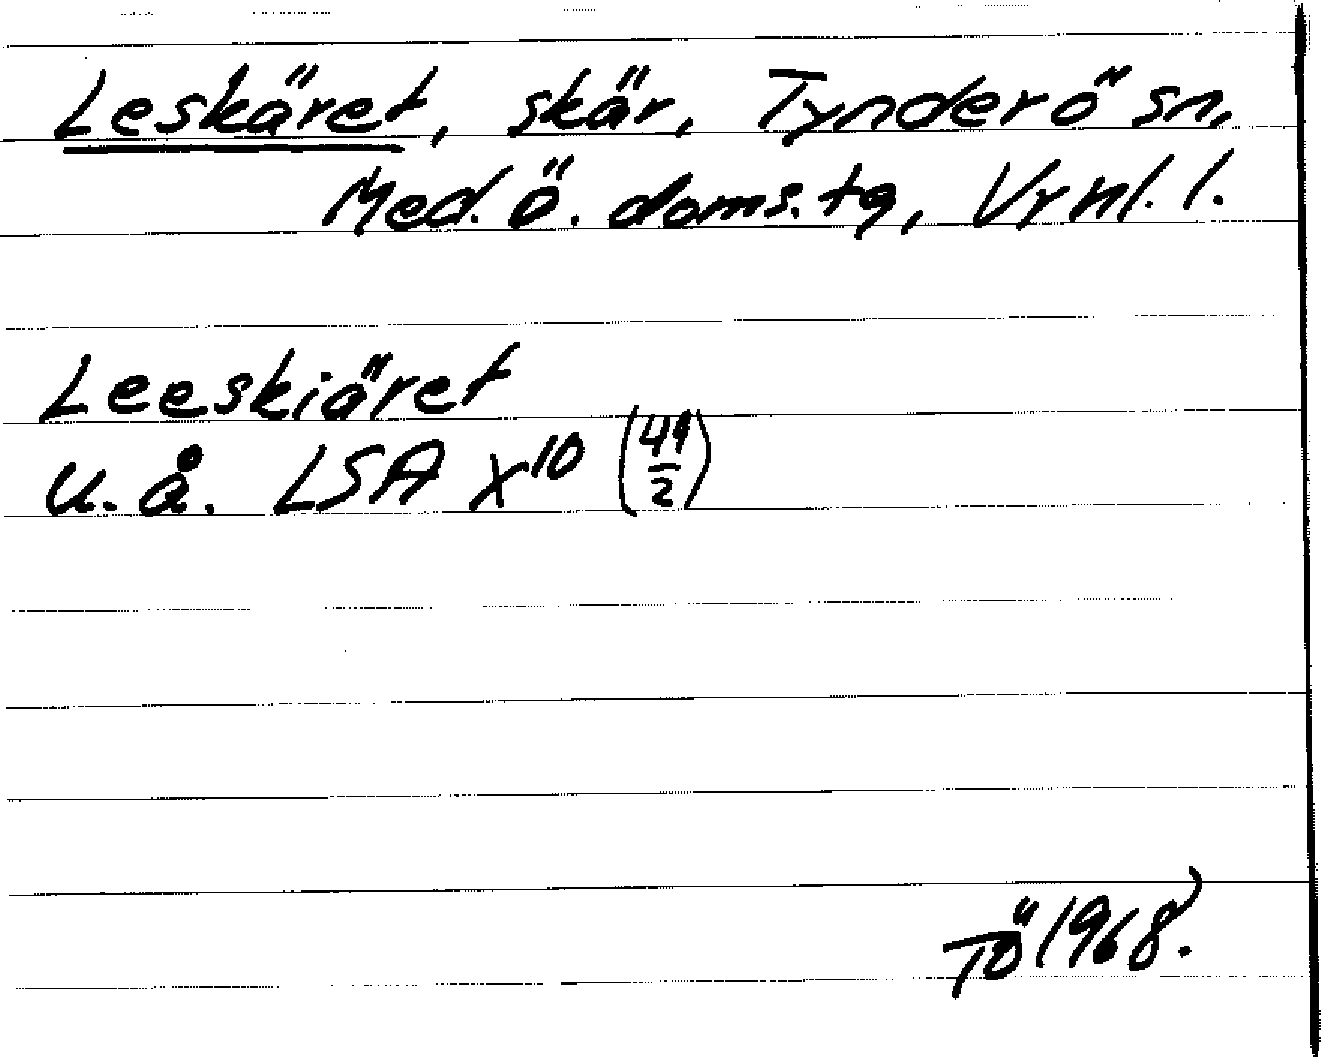 Leskäret, skär, Tynderö sn,
Med. Ö. doms.tg, Vrnl. l.
Leeskiäret
u.å. LSA X¹⁰ (49/2)
TÖ 1968.